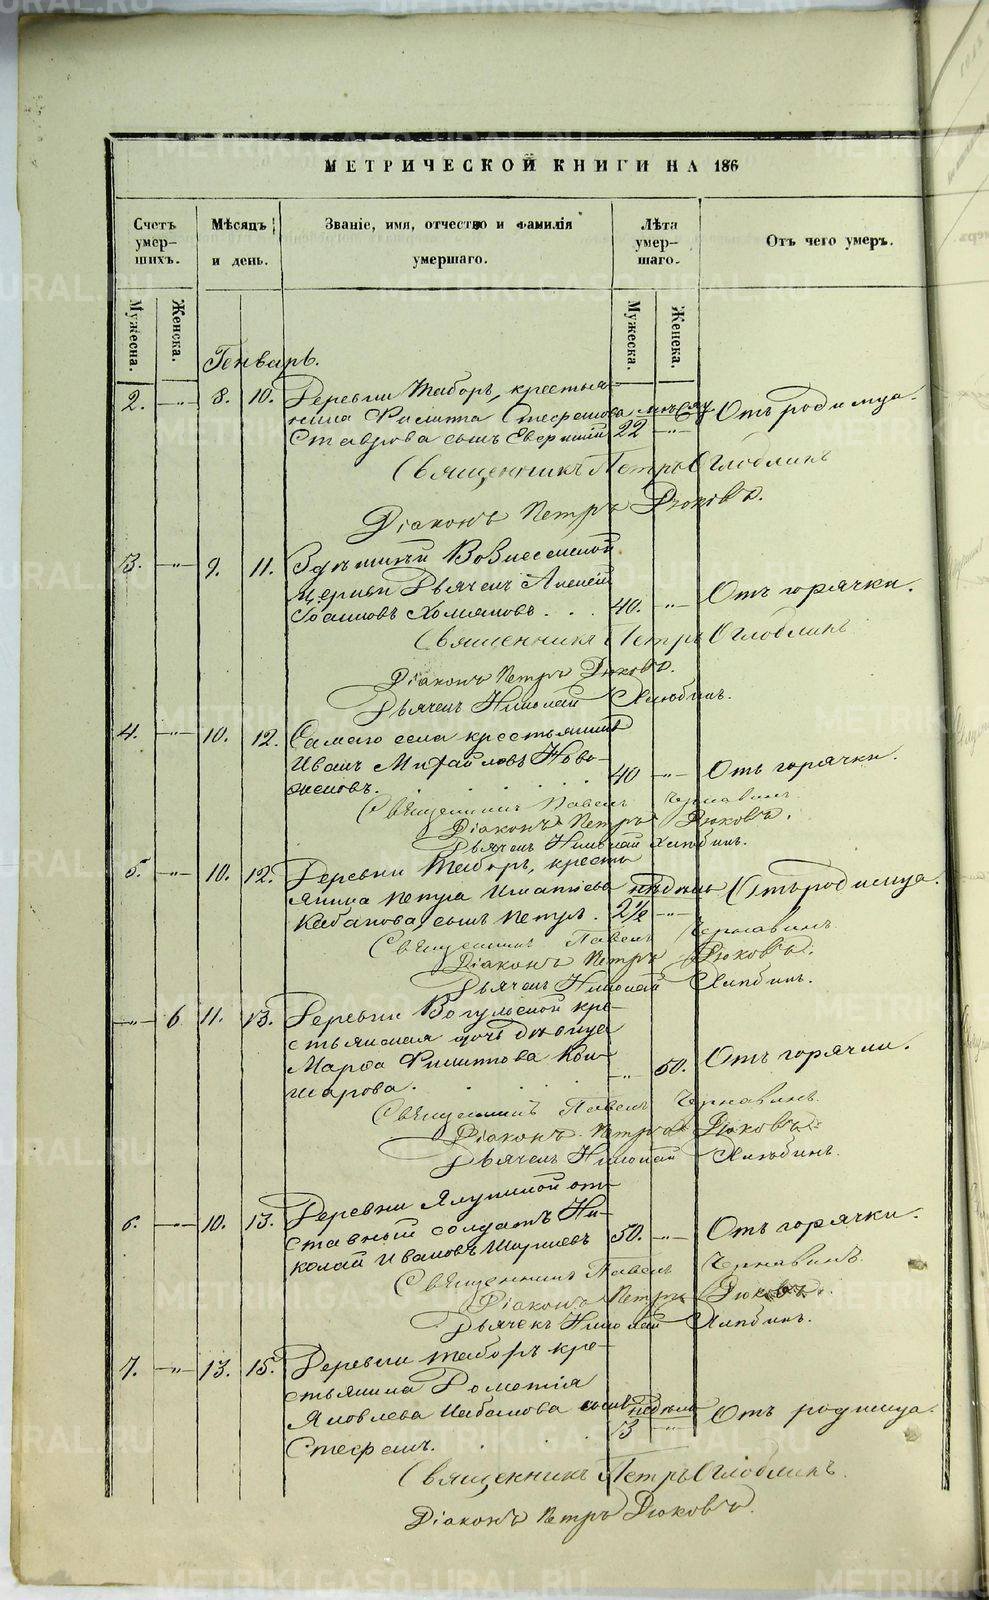 МЕТРИЧЕСКОЙ КНИГИ НА 186
Счетъ умер-шихъ. Мѣсяцъ и день. Званіе, имя, отчество и фамилія умершаго. Лѣта умер-шаго. Отъ чего умеръ.
Мужеска. Женска. Мужеска. Женска.
Генварь.
2. -"- 8. 10. Деревни Таборъ, крестья-
нина Филипа Стефанова мѣсяц Отъ родимца.
Ставрова сынъ 22 -"-
Священникъ Петръ Оглоблинъ
Діаконъ Петръ Дюковъ.
3. -"- 9. 11. Здѣшней Вознесенской
церкви Дьячекъ Алексѣй
Іоанновъ Хомяковъ. . . 40. -"- Отъ горячки.
Священникъ Петръ Оглоблинъ
Діаконъ Петръ Дюковъ.
Дьячекъ Николай Хлюбинъ.
4. -"- 10. 12. Самаго села крестьянинъ
Иванъ Михайловъ Ново-
. . . . 40 -"- Отъ горячки.
Священникъ Павелъ Чернавинъ
Діаконъ Петръ Дюковъ.
Дьячекъ Николай Хлюбинъ.
5. -"- 10. 12. Деревни Таборъ, кресть-
янина Петра Игнатіева недѣль Отъ родимца.
Кабакова, сынъ Петръ. 2½ -"-
Священникъ Павелъ Чернавинъ
Діаконъ Петръ Дюковъ.
Дьячекъ Николай Хлюбинъ.
-"- 6 11. 13. Деревни Вогульской кре-
стьянская дочь дѣвица
Марфа Филипова Кон-
шарова. . . . -"- 50. Отъ горячки.
Священникъ Павелъ Чернавинъ.
Діаконъ Петръ Дюковъ.
Дьячекъ Николай Хлюбинъ.
6. -"- 10. 13. Деревни Ялуниной от-
ставный солдатъ Ни-
колай Ивановъ 50. -"- Отъ горячки.
Священникъ Павелъ Чернавинъ.
Діаконъ Петръ Дюковъ.
Дьячекъ Николай Хлюбинъ.
7. -"- 13. 15. Деревни Таборъ кре-
стьянина
Яковлева Кабакова сынъ недѣли Отъ родимца.
Стефанъ. . . . 3 -"-
Священникъ Петръ Оглоблинъ.
Діаконъ Петръ Дюковъ.
METRIKI.GASO-URAL.RU